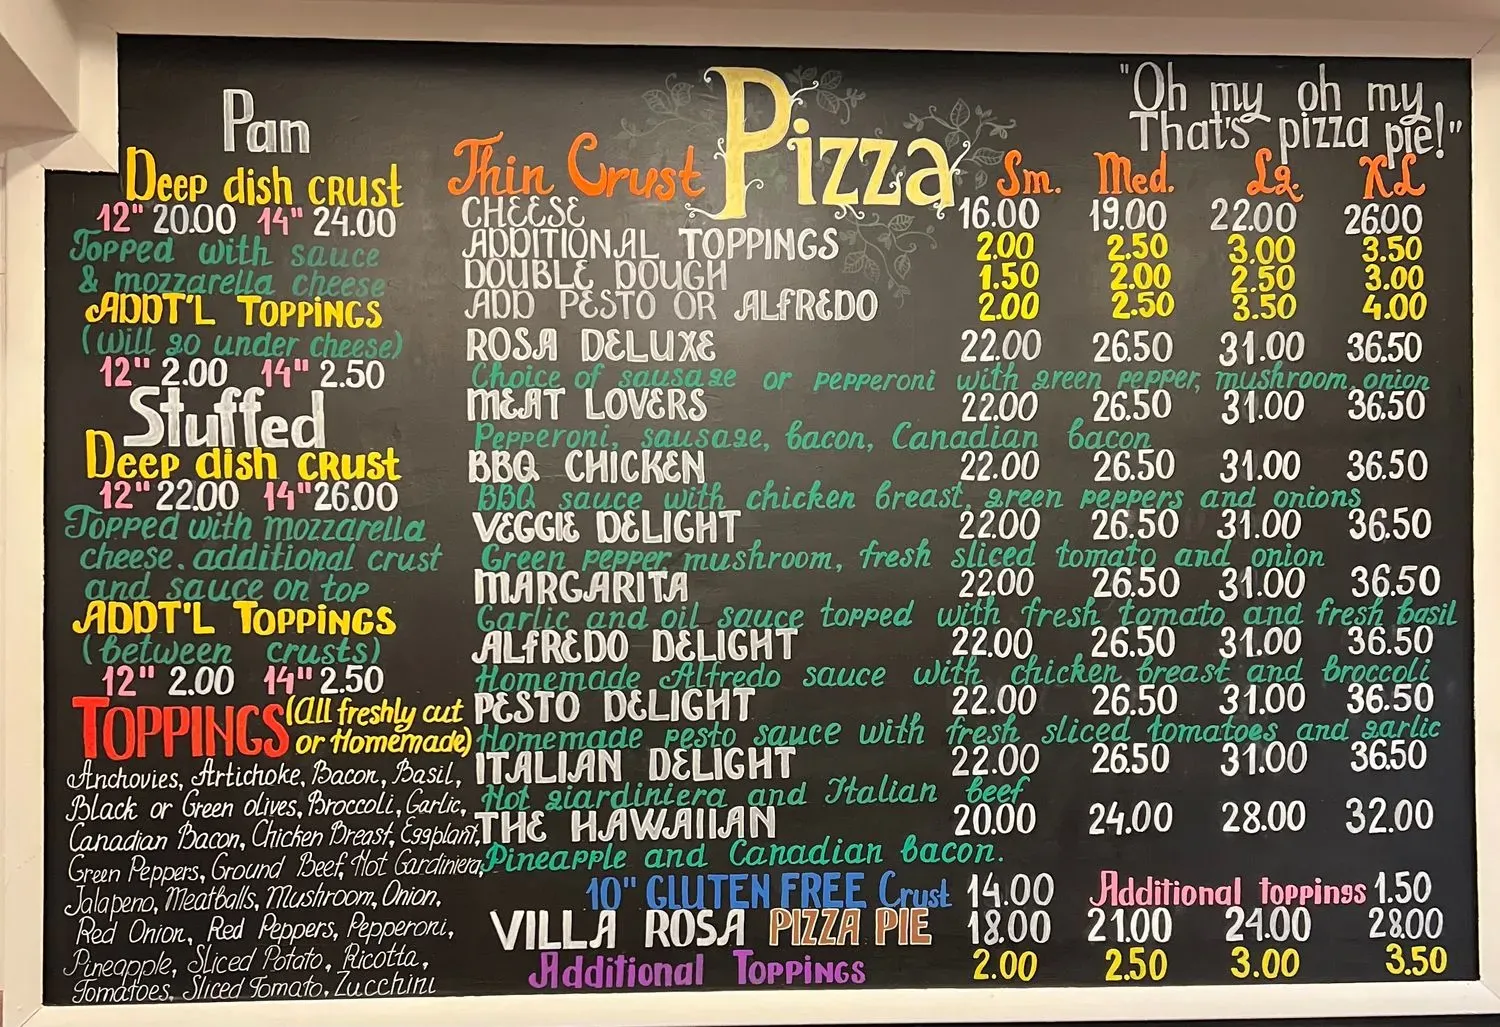 "Oh my oh my,
That's pizza pie!"
Pan
Deep dish crust
12" 20.00 14" 24.00
Topped with sauce
& mozzarella cheese
ADDT'L Toppings
(will go under cheese)
12" 2.00 14" 2.50
Stuffed
Deep dish crust
12" 22.00 14" 26.00
Topped with mozzarella
cheese. additional crust
and sauce on top
ADDT'L Toppings
(between crusts)
12" 2.00 14" 2.50
TOPPINGS (All freshly cut
or Homemade)
Anchovies, Artichoke, Bacon, Basil,
Black or Green olives, Broccoli, Garlic,
Canadian Bacon, Chicken Breast, Eggplant,
Green Peppers, Ground Beef, Hot Gardiniera,
Jalapeno, Meatballs, Mushroom, Onion,
Red Onion, Red Peppers, Pepperoni,
Pineapple, Sliced Potato, Ricotta,
Tomatoes, Sliced Tomato, Zucchini
Thin Crust Pizza Sm. Med. Lg. XL
CHEESE 16.00 19.00 22.00 26.00
ADDITIONAL TOPPINGS 2.00 2.50 3.00 3.50
DOUBLE DOUGH 1.50 2.00 2.50 3.00
ADD PESTO OR ALFREDO 2.00 2.50 3.50 4.00
ROSA DELUXE 22.00 26.50 31.00 36.50
Choice of sausage or pepperoni with green pepper, mushroom, onion
MEAT LOVERS 22.00 26.50 31.00 36.50
Pepperoni, sausage, bacon, Canadian bacon
BBQ CHICKEN 22.00 26.50 31.00 36.50
BBQ sauce with chicken breast, green peppers and onions
VEGGIE DELIGHT 22.00 26.50 31.00 36.50
Green pepper mushroom, fresh sliced tomato and onion
MARGARITA 22.00 26.50 31.00 36.50
Garlic and oil sauce topped with fresh tomato and fresh basil
ALFREDO DELIGHT 22.00 26.50 31.00 36.50
Homemade Alfredo sauce with chicken breast and broccoli
PESTO DELIGHT 22.00 26.50 31.00 36.50
Homemade pesto sauce with fresh sliced tomatoes and garlic
ITALIAN DELIGHT 22.00 26.50 31.00 36.50
Hot giardiniera and Italian beef
THE HAWAIIAN 20.00 24.00 28.00 32.00
Pineapple and Canadian bacon.
10" GLUTEN FREE Crust 14.00 Additional toppings 1.50
VILLA ROSA PIZZA PIE 18.00 21.00 24.00 28.00
Additional Toppings 2.00 2.50 3.00 3.50